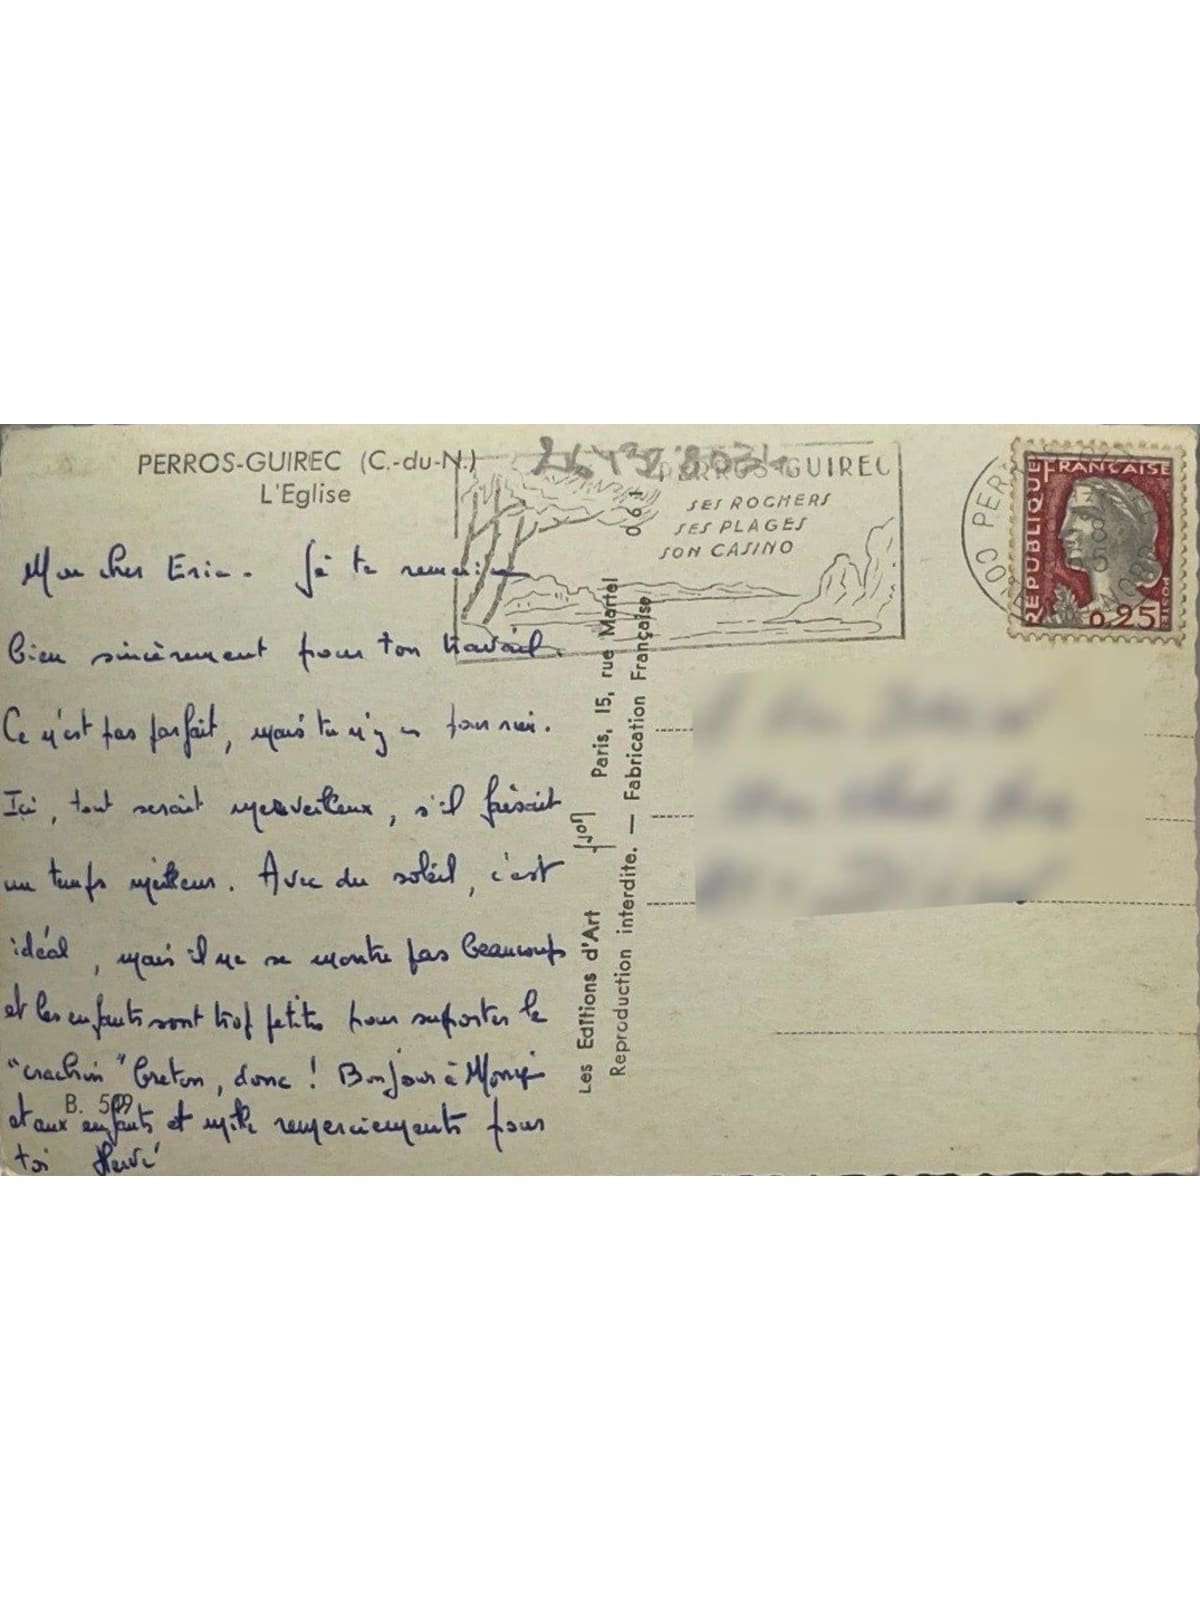 PERROS-GUIREC (C.-du-N.)
L'Eglise
Mon cher Eric. Je te remercie
bien sincèrement pour ton travail.
Ce n'est pas parfait, mais tu n'y es pour rien.
Ici, tout serait merveilleux, s'il faisait
un temps meilleur. Avec du soleil, c'est
idéal, mais il ne se montre pas beaucoup
et les enfants sont trop petits pour supporter le
"crachin" breton, donc ! Bonjour à
B. 509
et aux enfants et mille remerciements pour
toi Hervé
PERROS-GUIREC
SES ROCHERS
SES PLAGES
SON CASINO
Les Editions d'Art Yvon Paris, 15, rue Martel
Reproduction interdite. — Fabrication Française
REPUBLIQUE
FRANÇAISE
0,25
POSTES